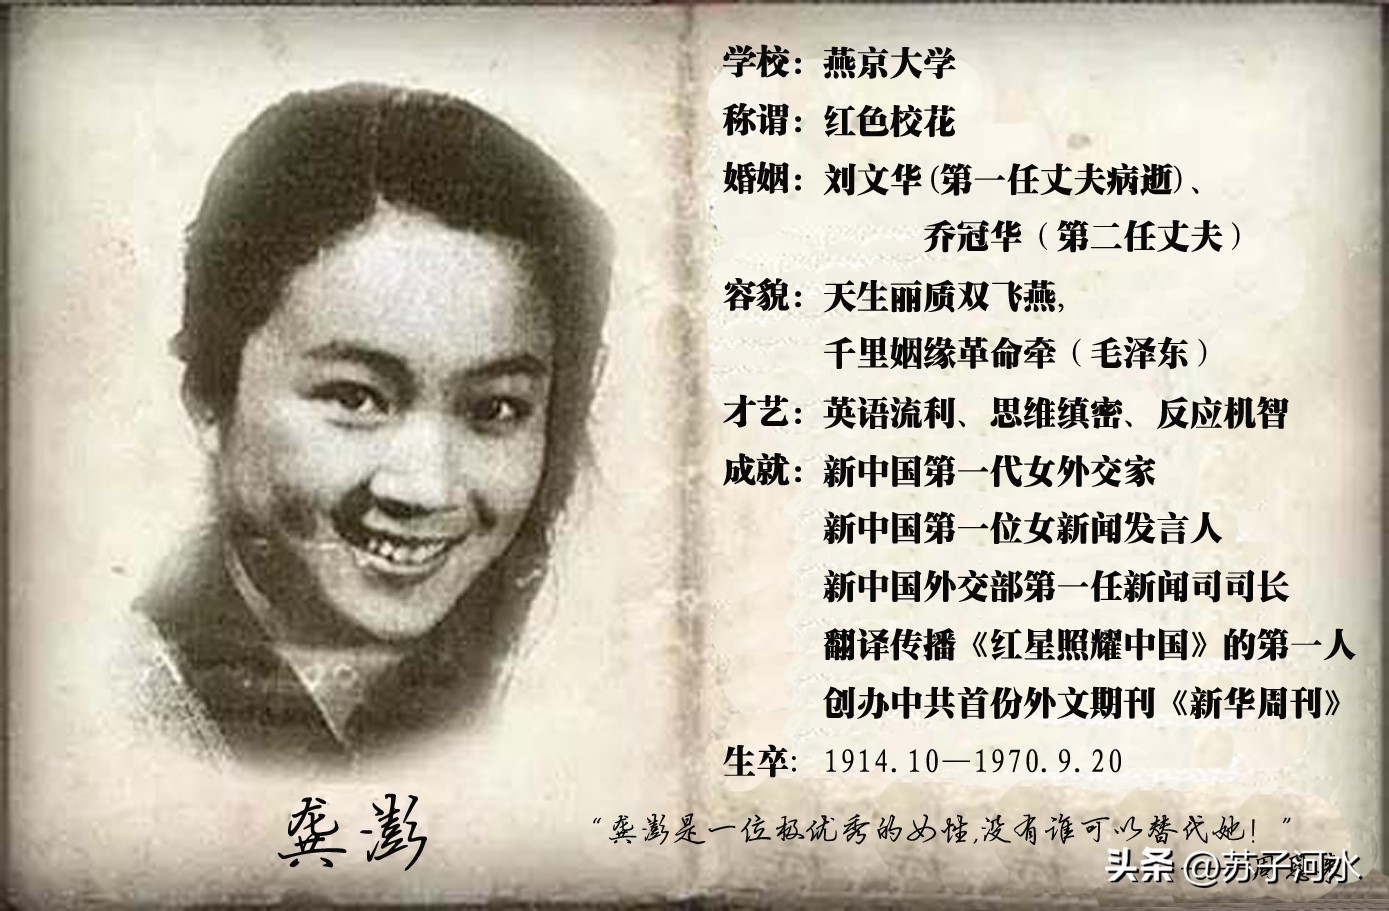 学校：燕京大学
称谓：红色校花
婚姻：刘文华(第一任丈夫病逝)、
乔冠华（第二任丈夫）
容貌：天生丽质双飞燕，
千里姻缘革命牵（毛泽东）
才艺：英语流利、思维缜密、反应机智
成就：新中国第一代女外交家
新中国第一位女新闻发言人
新中国外交部第一任新闻司司长
翻译传播《红星照耀中国》的第一人
创办中共首份外文期刊《新华周刊》
生卒：1914.10—1970.9.20
龚澎
“龚澎是一位极优秀的女性,没有谁可以替代她！”
头条 @苏子河水